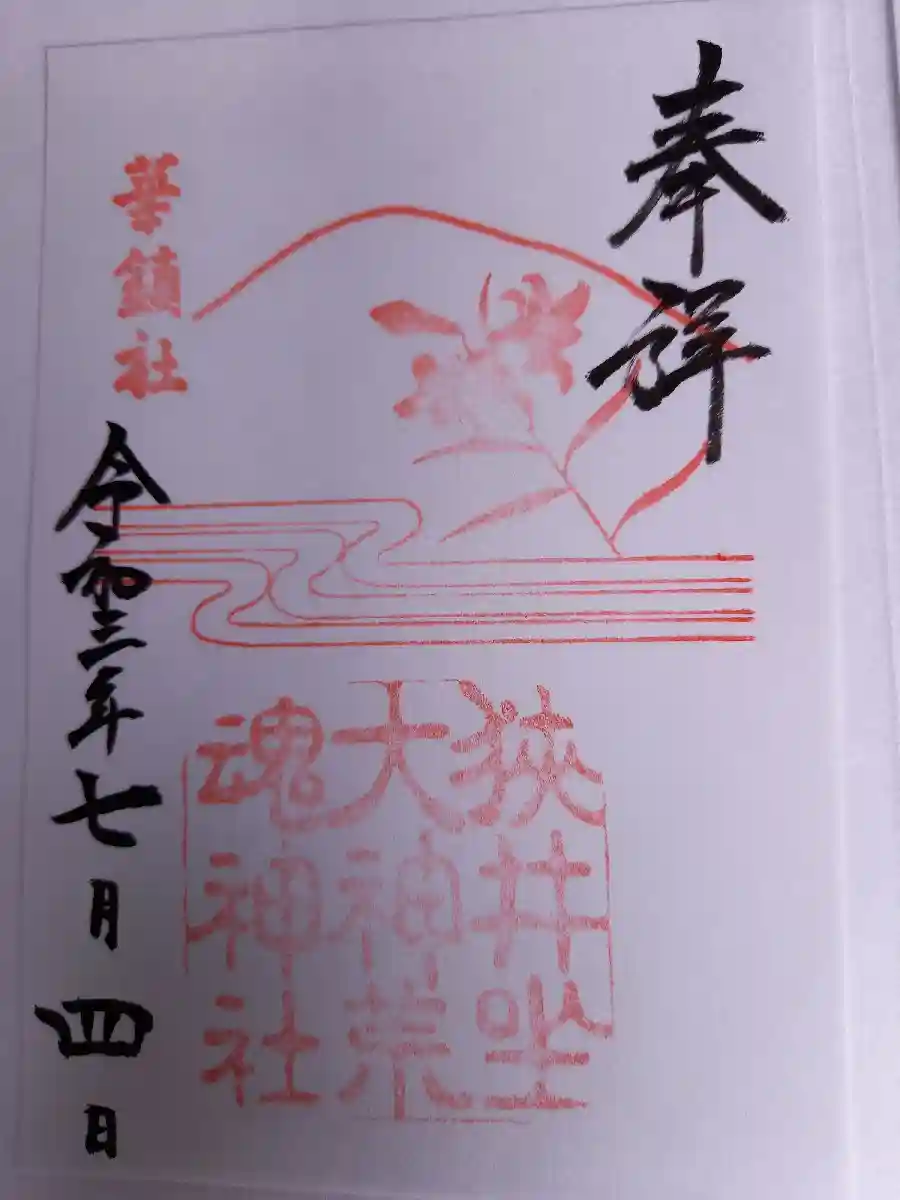 奉拝
狭井坐
大神荒
魂神社
華鎮社
令和三年七月四日